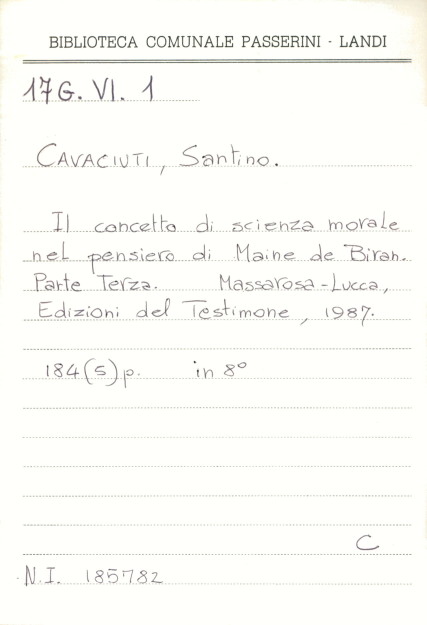 BIBLIOTECA COMUNALE PASSERINI - LANDI
17G. VI. 1
CAVACIUTI, Santino.
Il concetto di scienza morale
nel pensiero di Maine de Biran.
Parte Terza. Massarosa-Lucca,
Edizioni del Testimone, 1987.
184(5)p. in 8°
C
N.I. 185782